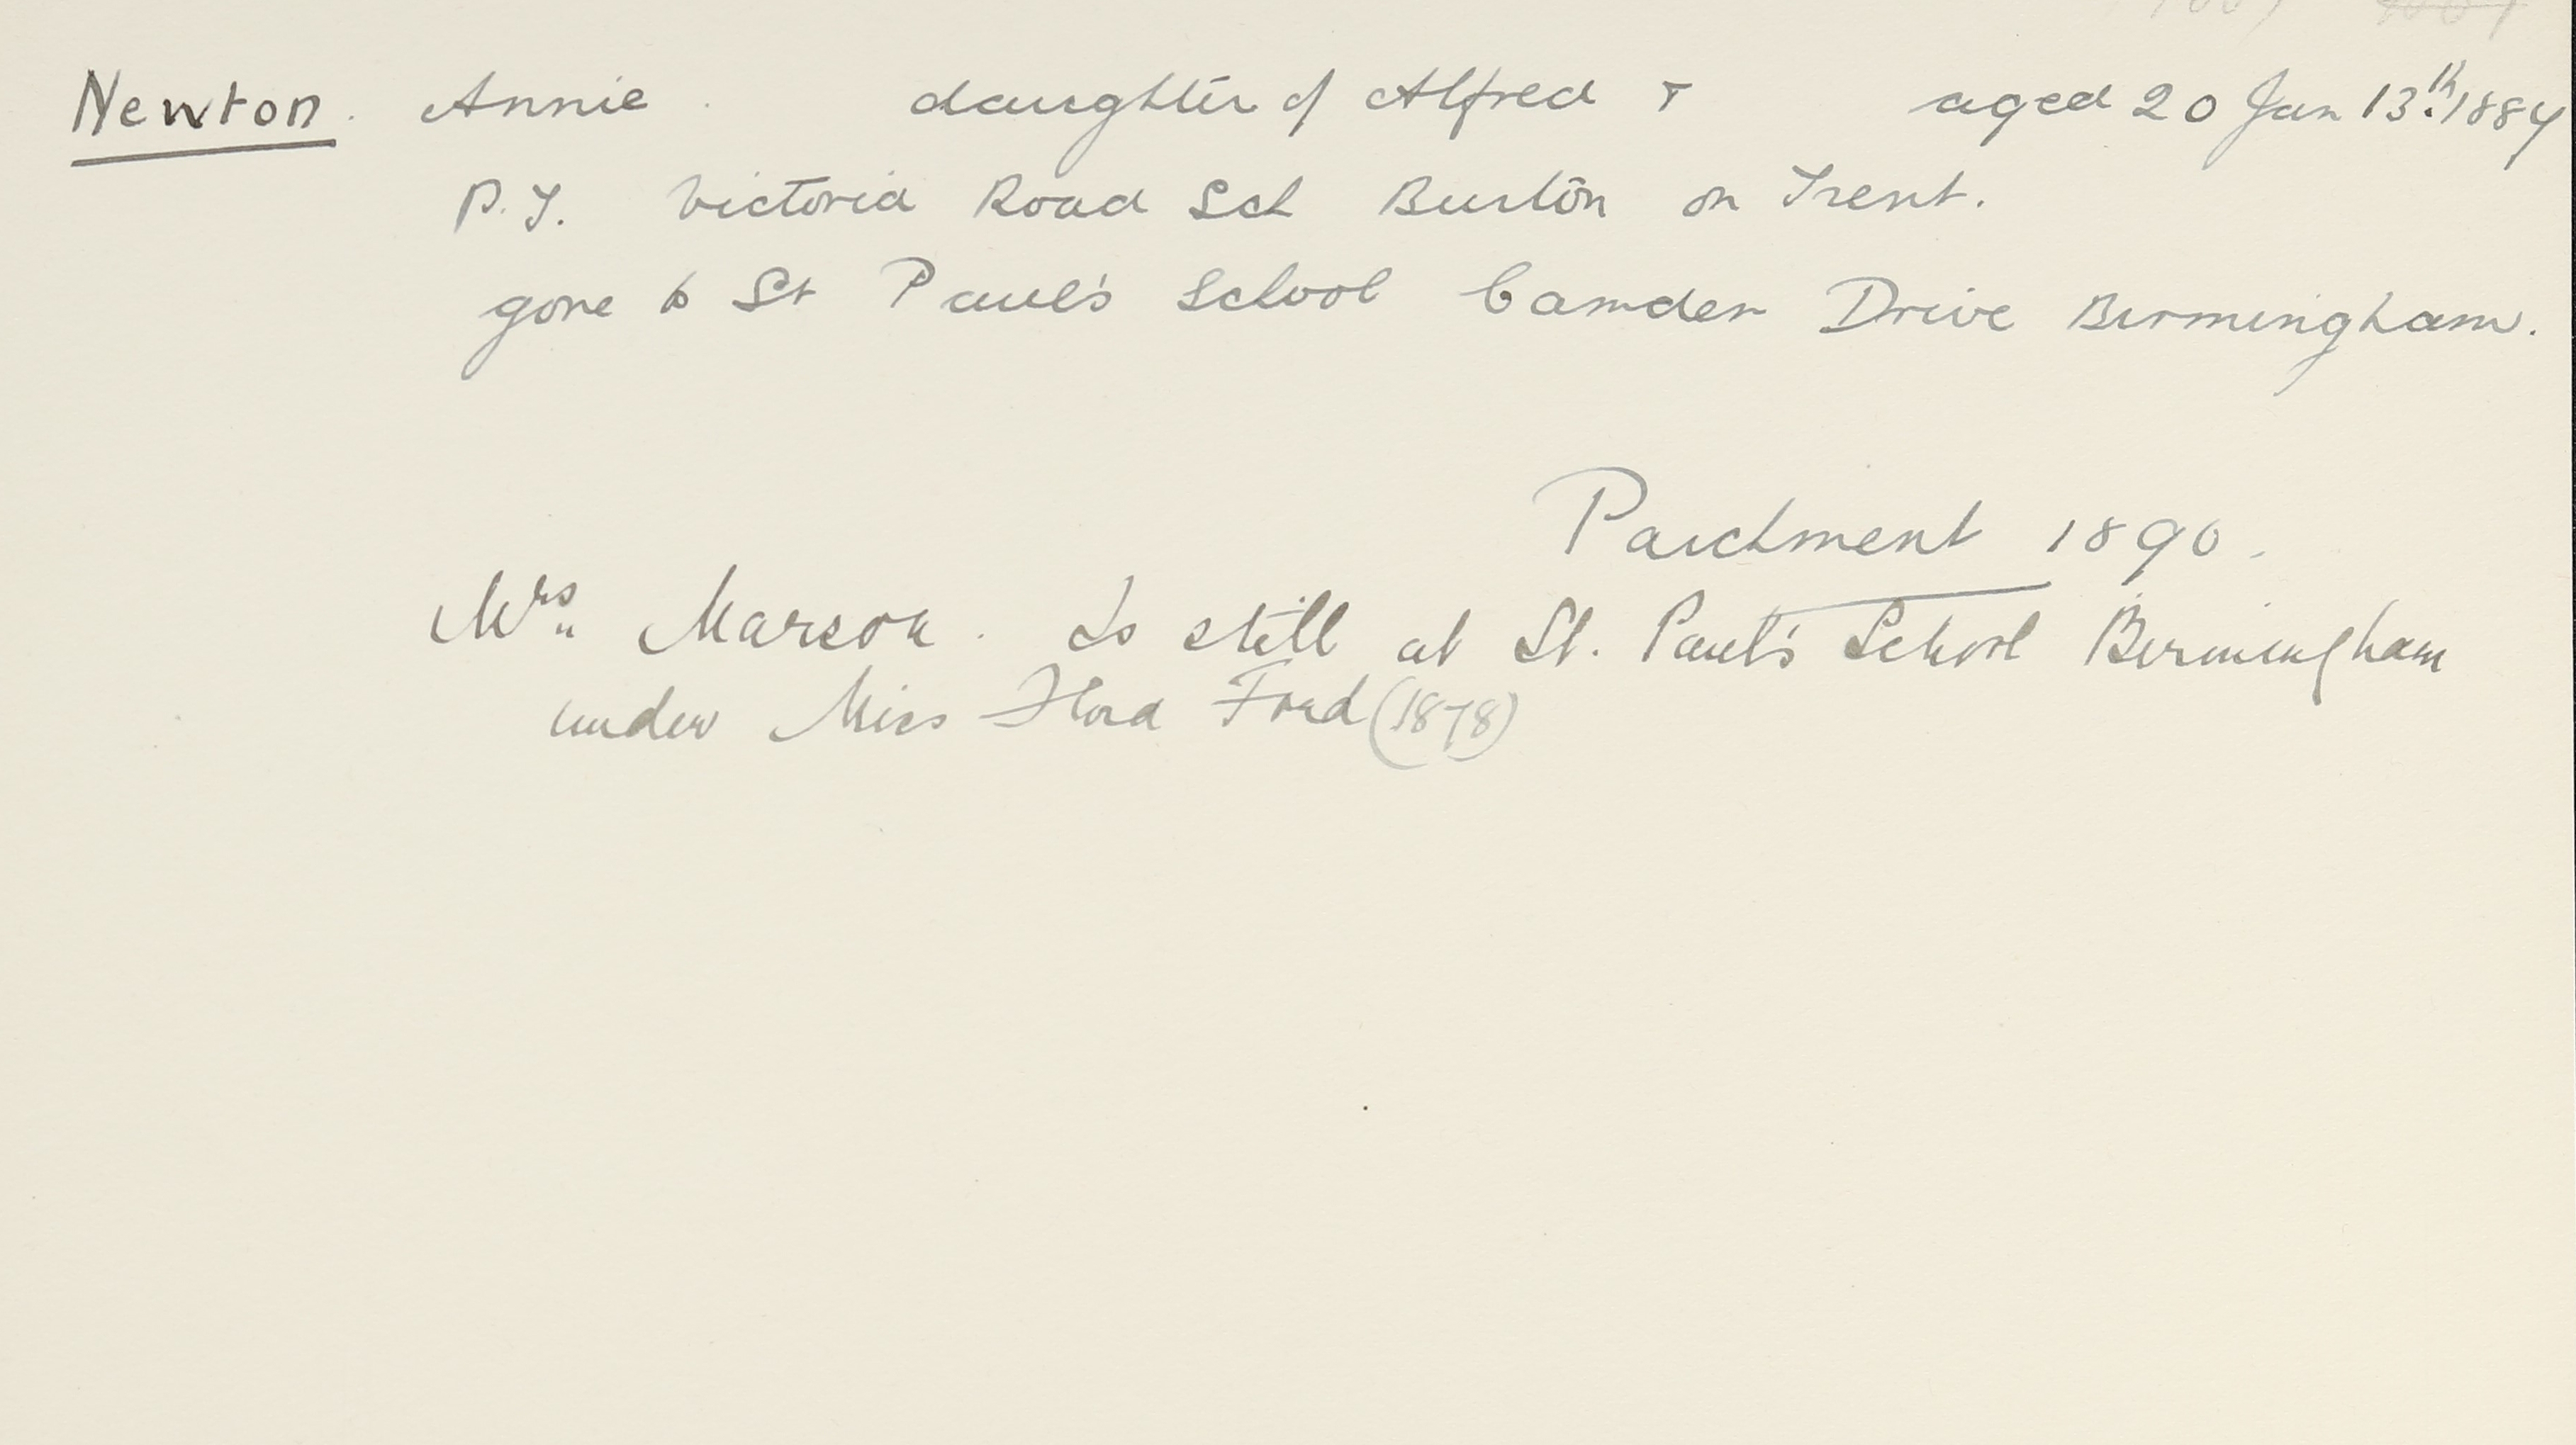 Newton. Annie. daughter of Alfred & aged 20 Jan 13th 1884
P.T. Victoria Road Sch Burton on Trent.
gone to St Paul's School Camden Drive Birmingham.
Parchment 1890.
Mrs Marson. Is still at St. Paul's School Birmingham
under Miss Flora Ford (1878)